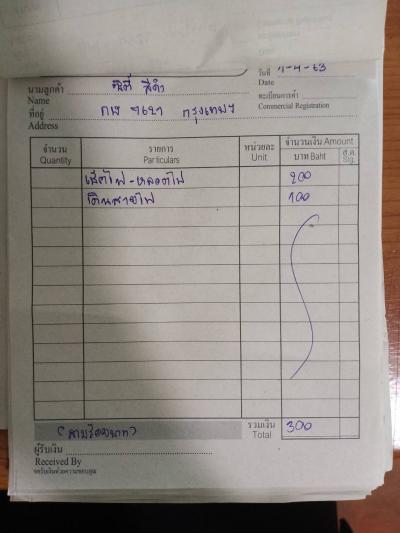 วันที่ 7-4-63
Date
นามลูกค้า
Name
ทะเบียนการค้า
Commercial Registration
ที่อยู่ กรุงเทพฯ
Address
จำนวน รายการ หน่วยละ จำนวนเงิน Amount
Quantity Particulars Unit บาท Baht ส.ต. Stg.
200
เดินสายไฟ 100
(สามร้อยบาท) รวมเงิน 300
Total
ผู้รับเงิน
Received By
ขอรับเงินด้วยความขอบคุณ